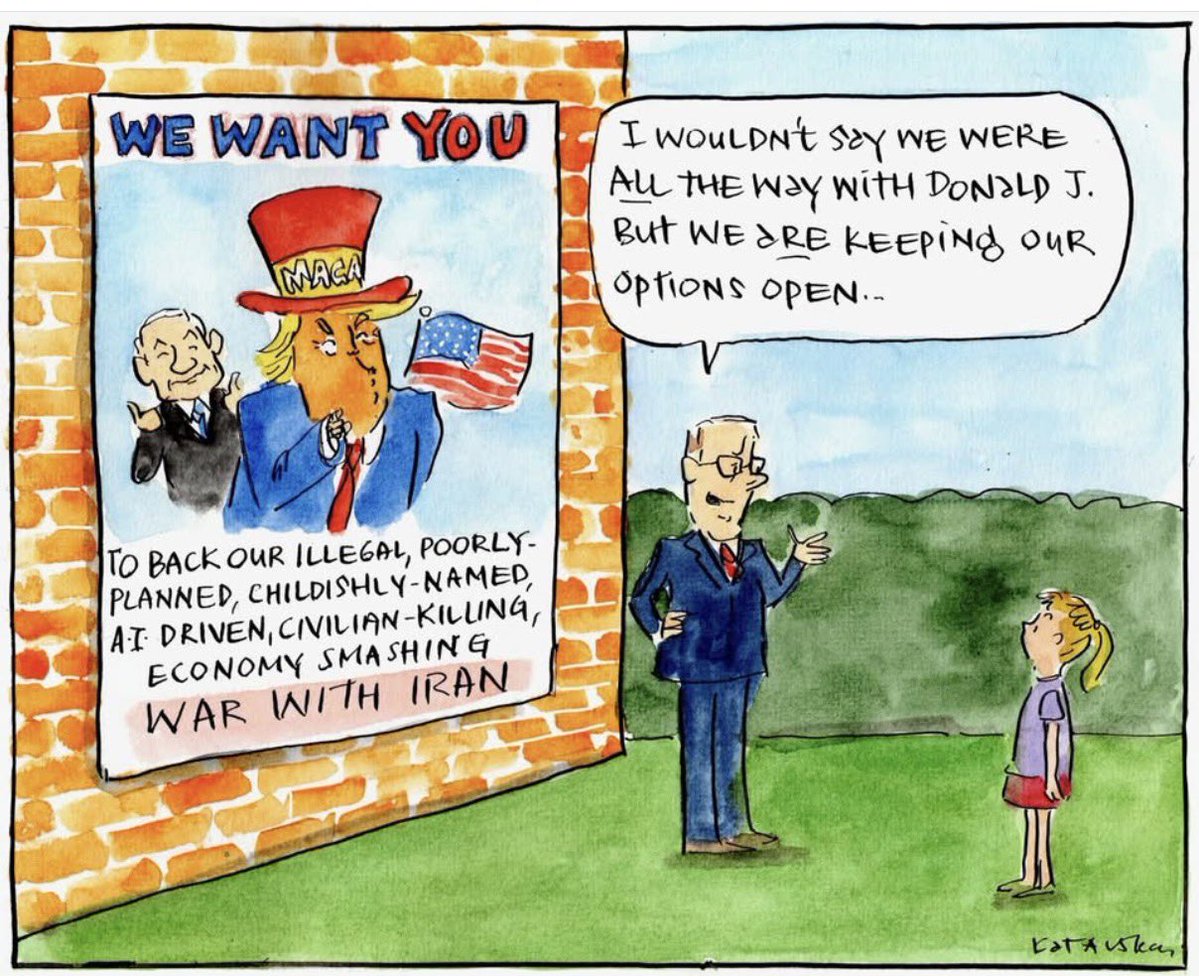 WE WANT YOU
MAGA
TO BACK OUR ILLEGAL, POORLY-
PLANNED, CHILDISHLY-NAMED,
A.I. DRIVEN, CIVILIAN-KILLING,
ECONOMY SMASHING
WAR WITH IRAN
I WOULDN'T SAY WE WERE
ALL THE WAY WITH DONALD J.
BUT WE ARE KEEPING OUR
OPTIONS OPEN..
KATAUSKAS